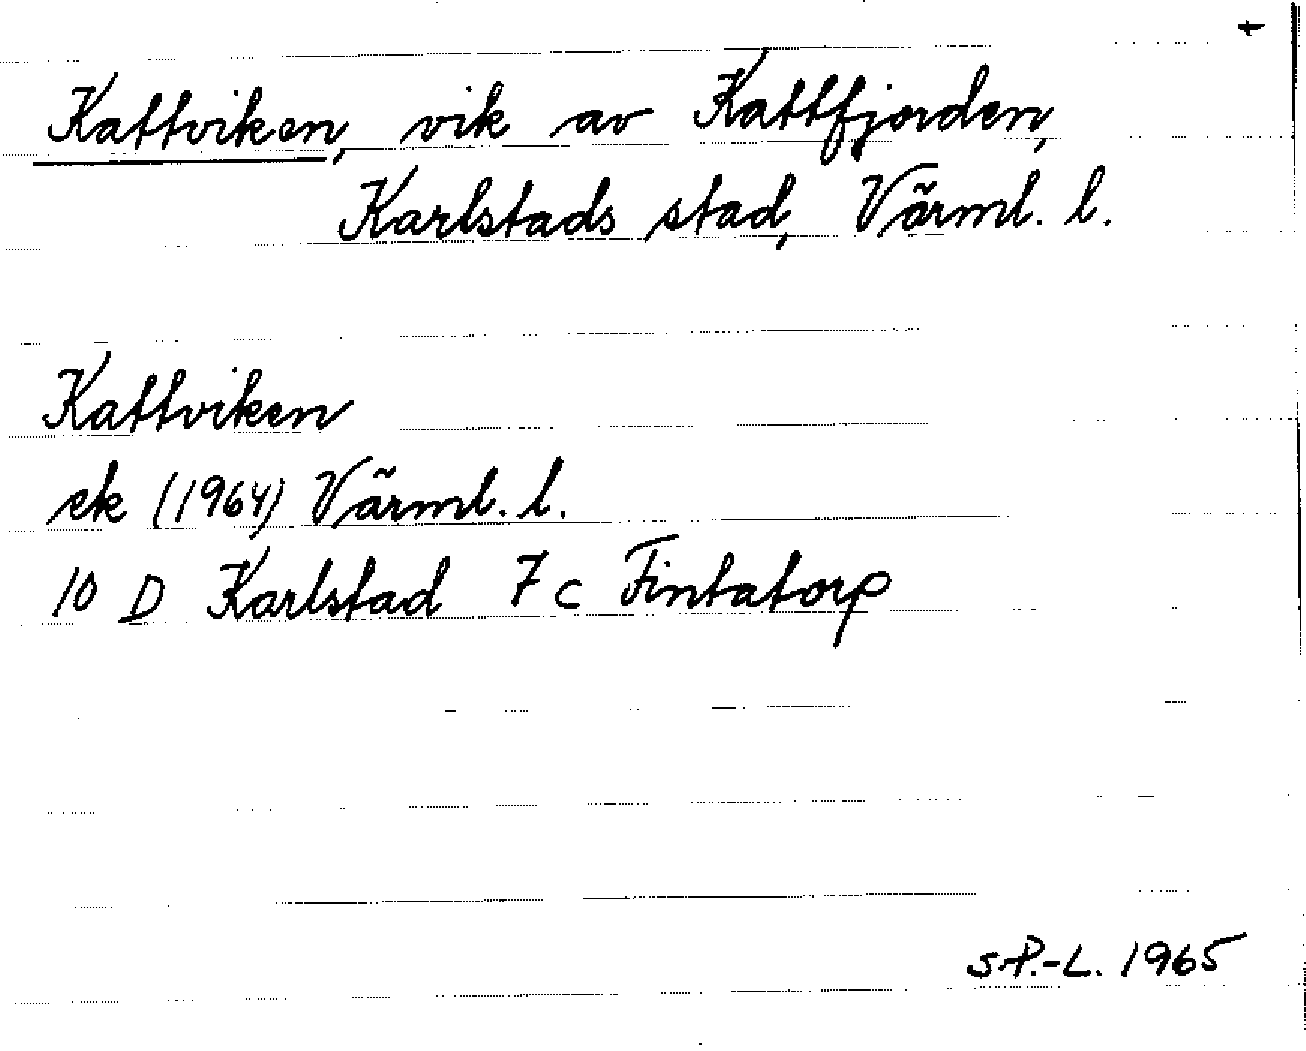 +
Kattviken, vik av Kattfjorden,
Karlstads stad, Värml. l.
Kattviken
ek (1964) Värml. l.
10 D Karlstad 7 c Fintatorp
S.P.-L. 1965